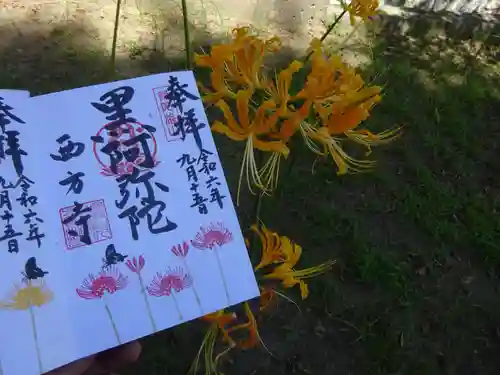 奉拝
令和六年
九月十五日
黒阿弥陀
西方寺
奉拝
令和六年
九月十五日